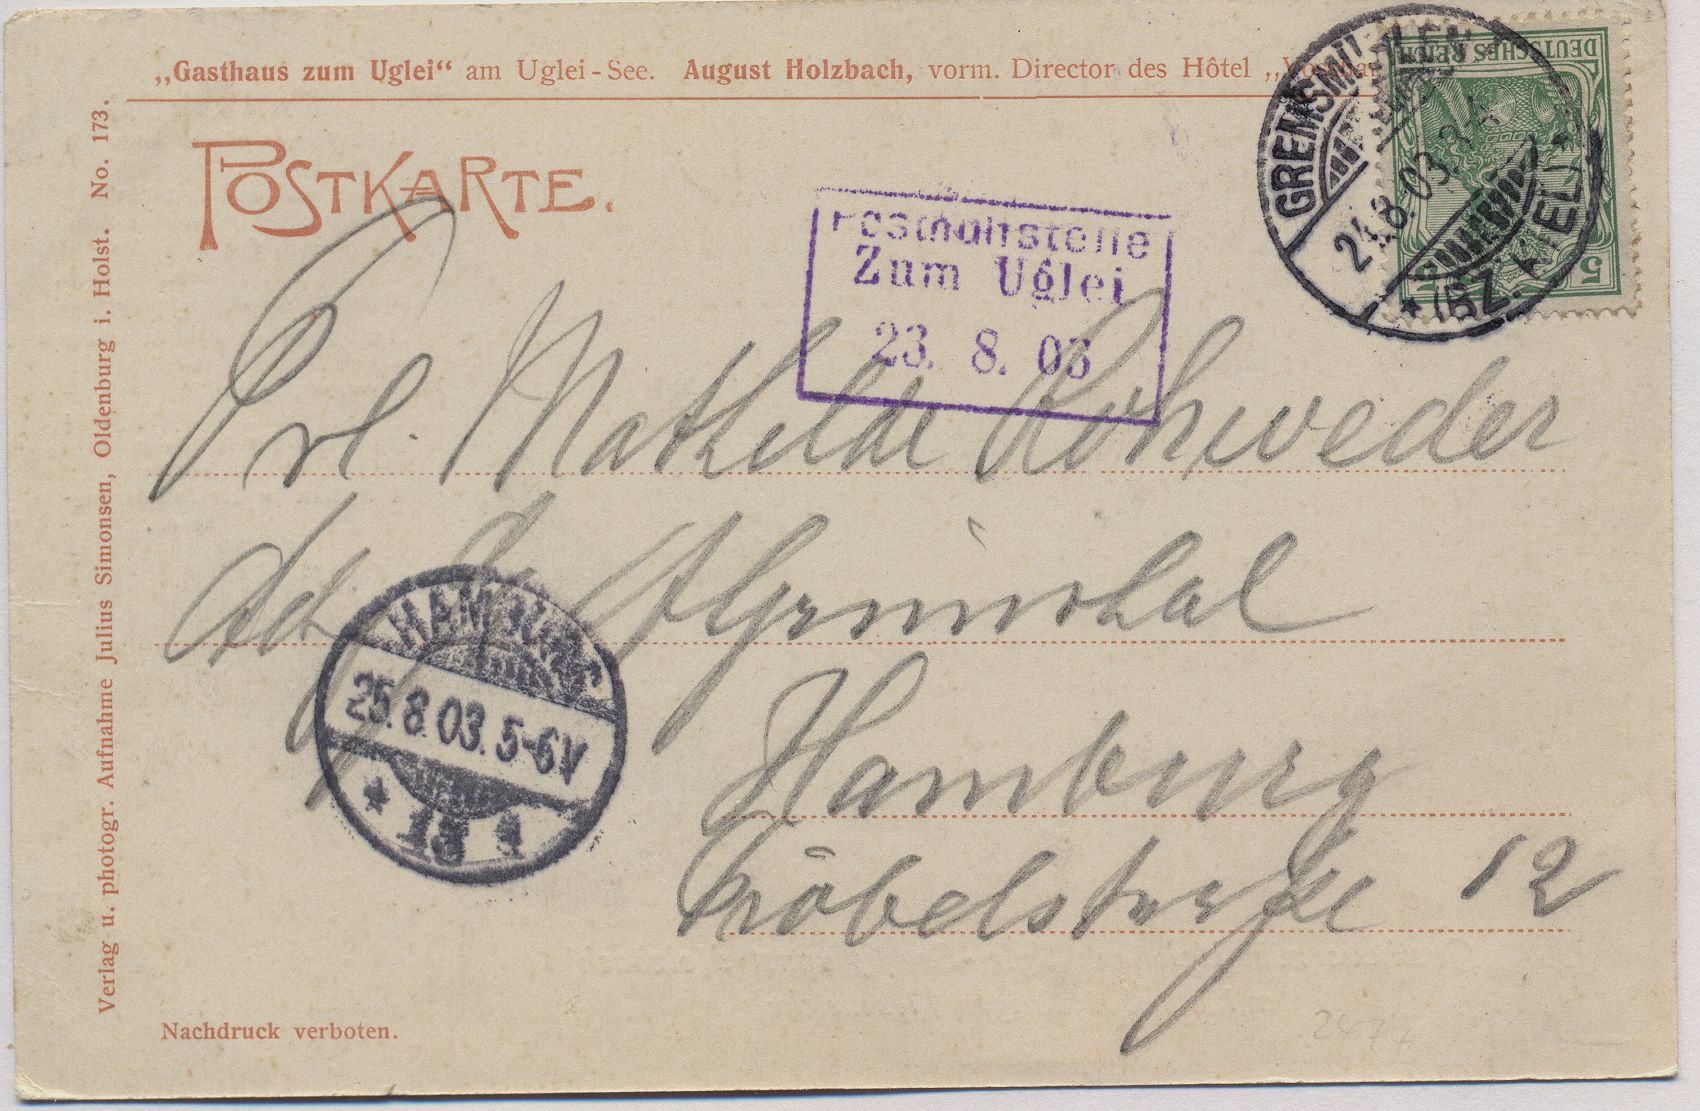 „Gasthaus zum Uglei“ am Uglei-See. August Holzbach, vorm. Director des Hôtel
POSTKARTE.
Verlag u. photogr. Aufnahme Julius Simonsen, Oldenburg i. Holst. No. 173.
Posthülfstelle
Zum Uglei
23. 8. 03
GREMSMÜHLEN
24.8.03.
* (BZ. KIEL) *
DEUTSCHES REICH
5
Frl. Mathilde Rohweder
Hamburg
Fröbelstraße 12
HAMBURG
25.8.03. 5-6V
* 13
Nachdruck verboten.